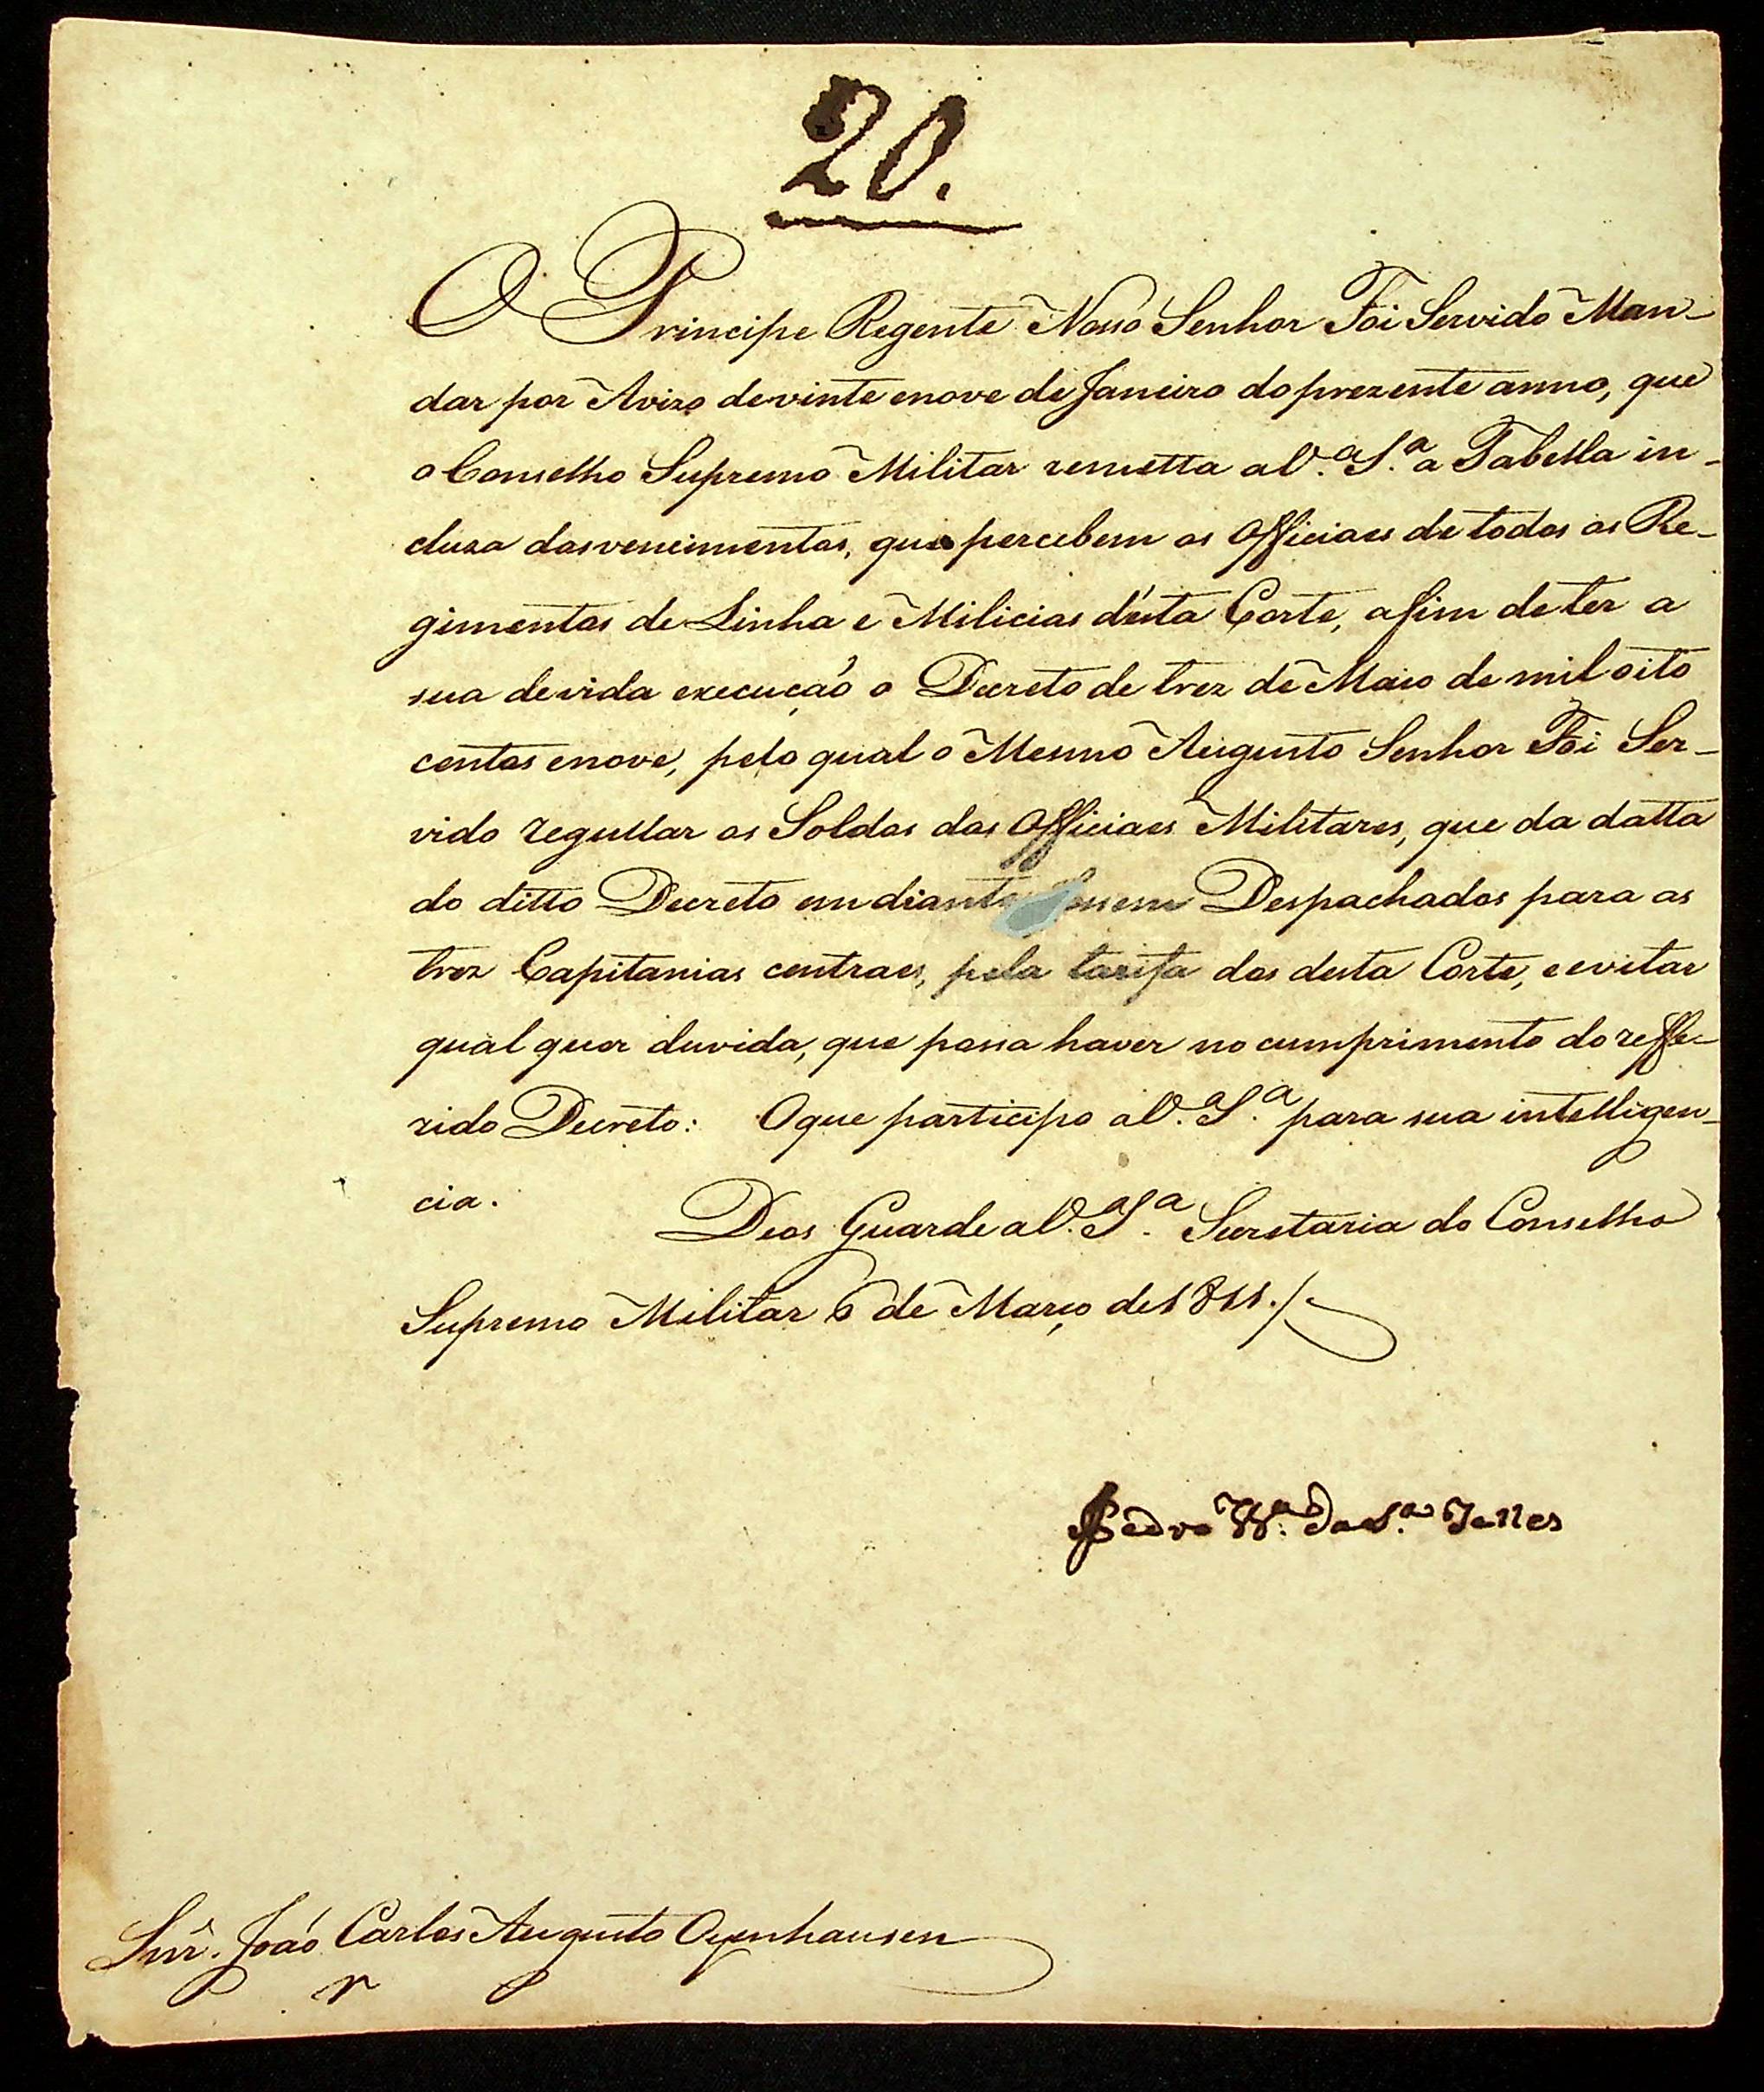 20.
O Principe Regente Nosso Senhor Foi Servido Man-
dar por Avizo de vinte e nove de Janeiro do prezente anno, que
o Conselho Supremo Militar remetta a V.ª S.ª a Tabella in-
cluza dos vencimentos, que percebem os Officiaes de todos os Re-
gimentos de Linha e Milicias d'esta Corte, afim de ter a
sua devida execução o Decreto de trez de Maio de mil oito
centos e nove, pelo qual o Mesmo Augusto Senhor Foi Ser-
vido regullar os Soldos dos Officiaes Militares, que da datta
do ditto Decreto em diante fossem Despachados para as
trez Capitanias centraes, pela tarifa dos desta Corte, e evitar
qual quer duvida, que possa haver no cumprimento do reffe-
rido Decreto: O que participo a V.ª S.ª para sua intelligen-
cia.
Deos Guarde a V.ª S.ª Secretaria do Conselho
Supremo Militar 6 de Março de 1811./
Pedro V.ª da S.ª Telles
Snr. João Carlos Augusto Oyenhausen